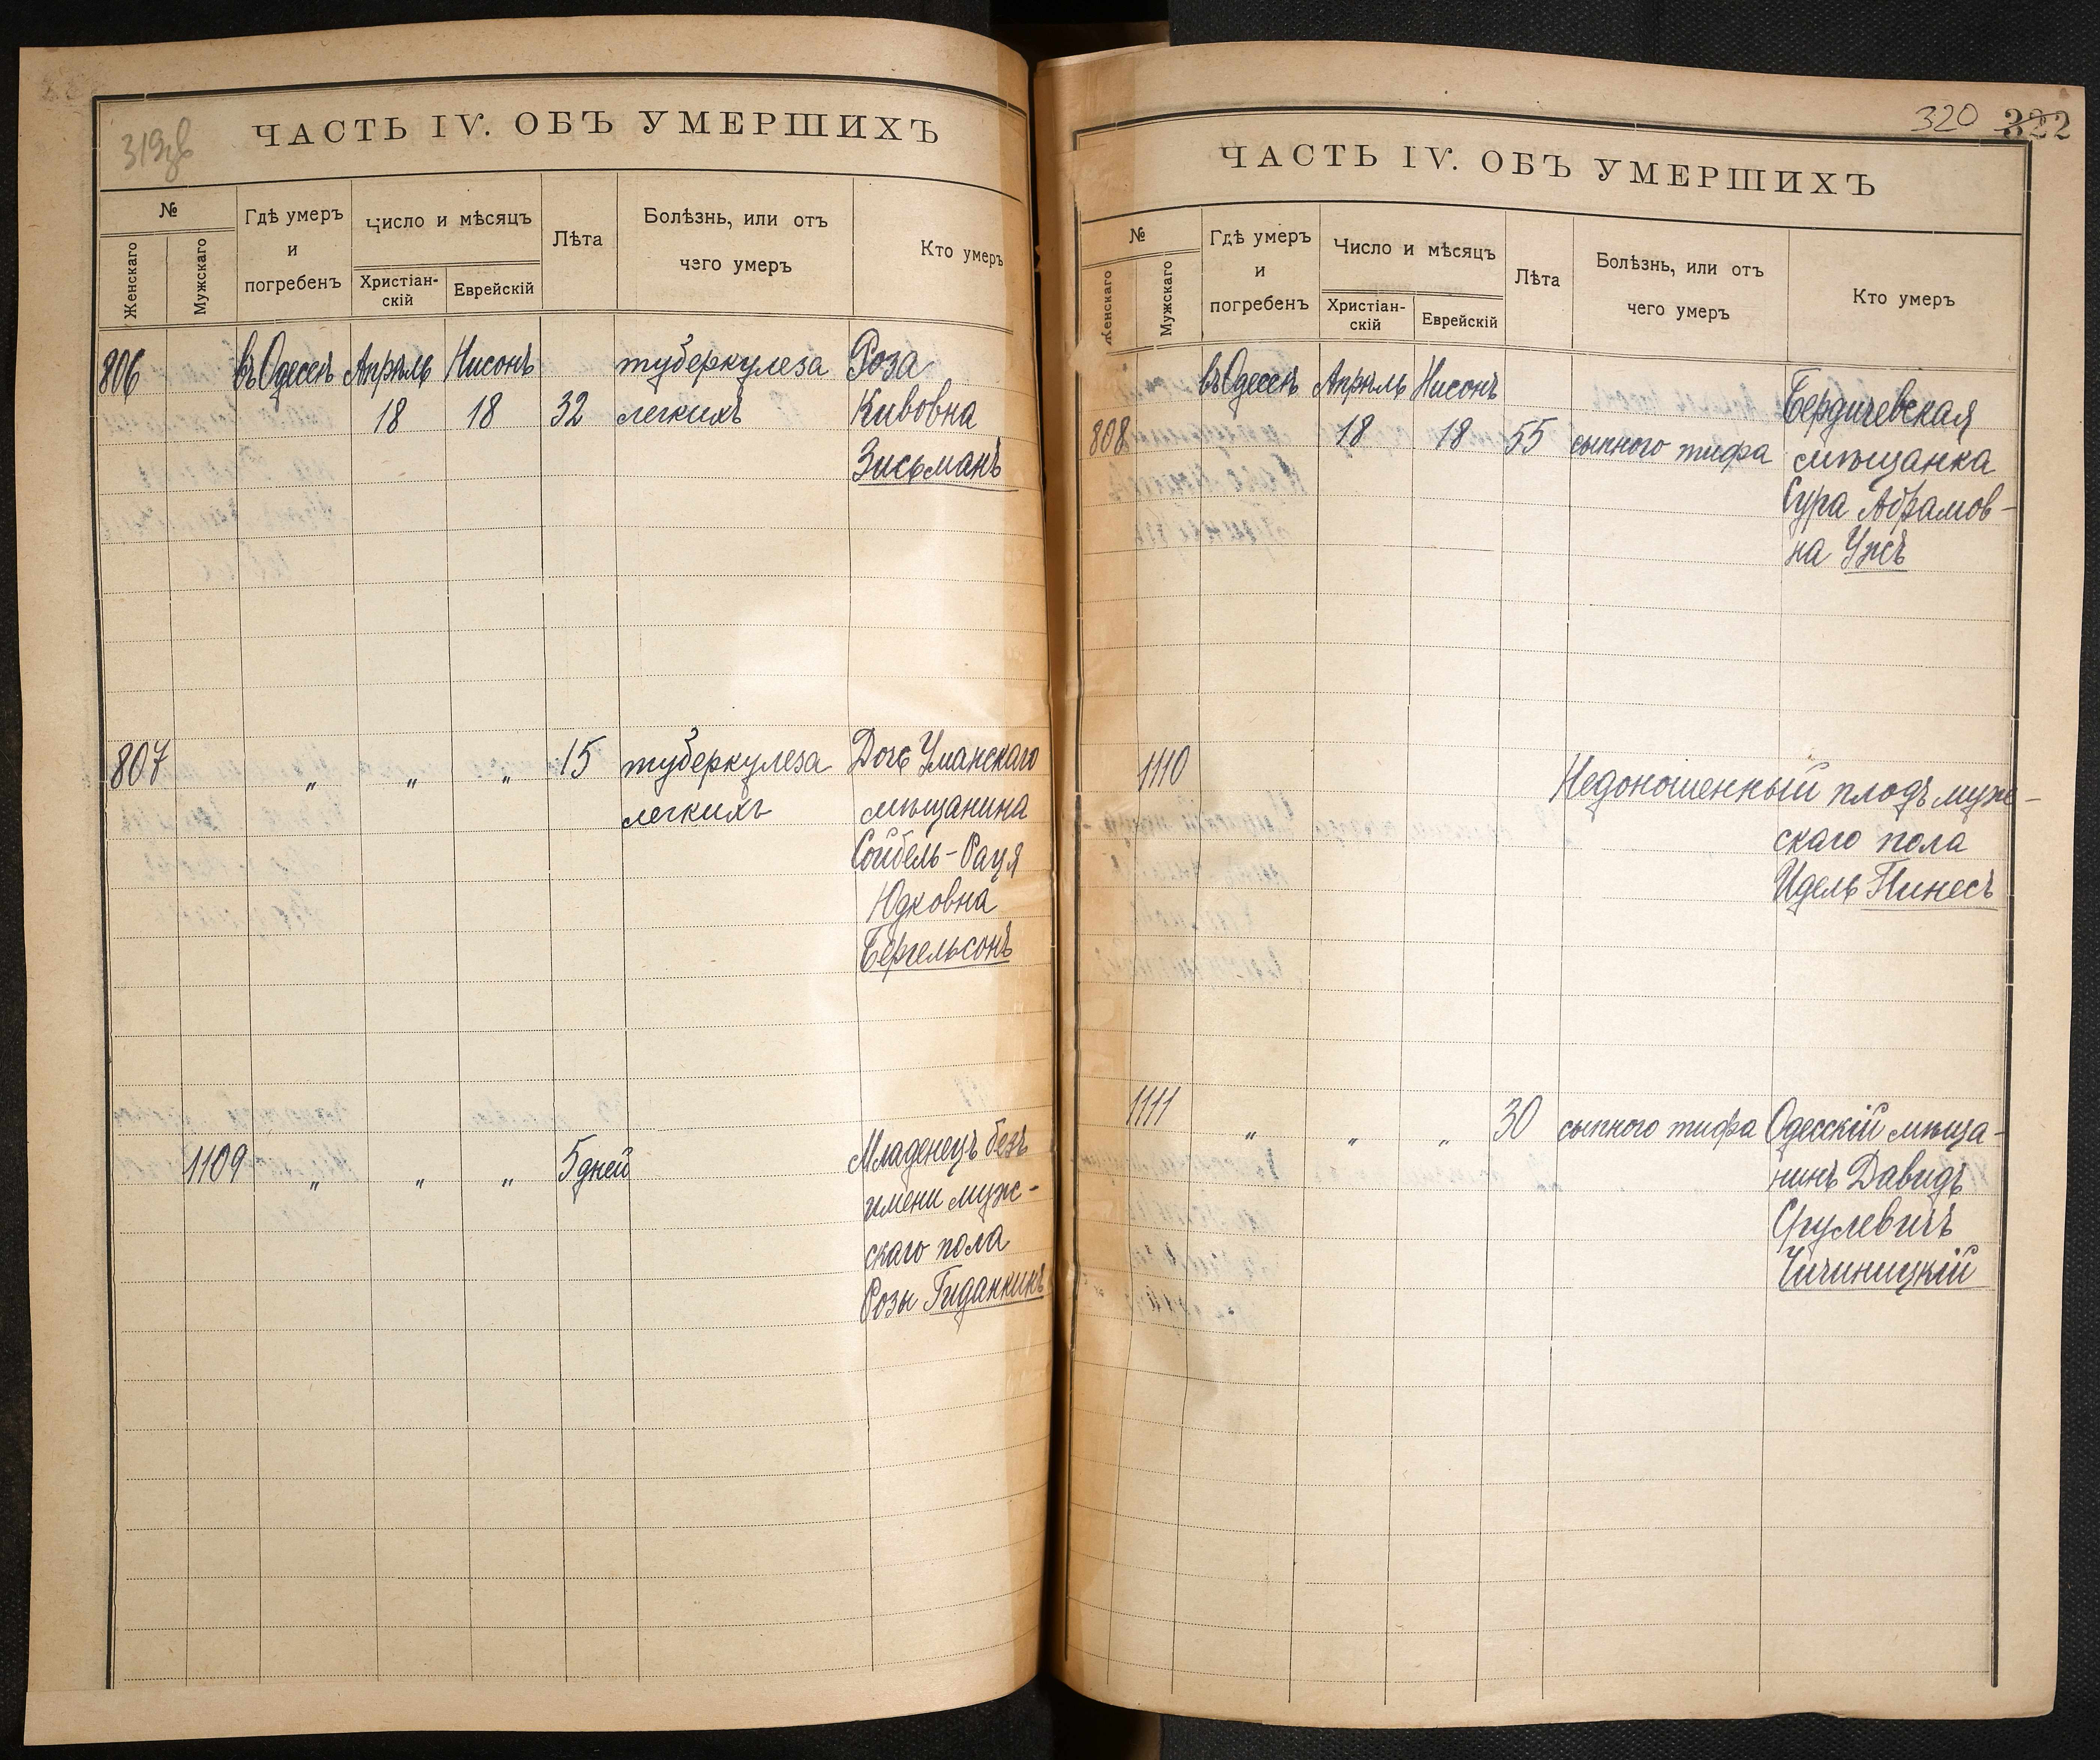 319 зв
ЧАСТЬ IV. ОБЪ УМЕРШИХЪ
№
Женскаго
Мужскаго
Гдѣ умеръ
и
погребенъ
Число и мѣсяцъ
Христіан-
скій
Еврейскій
Лѣта
Болѣзнь, или отъ
чего умеръ
Кто умеръ
806 въ Одессѣ Апрѣль Нисонъ туберкулеза Роза
18 18 32 легкихъ Кивовна
Зисьманъ
807 " " " 15 туберкулеза Дочь Уманскаго
легкихъ мѣщанина
Сойбель-Рауя
Юдковна
Бергельсонъ
1109 " " " 5 дней Младенецъ безъ
имени муж-
скаго пола
Розы Гиданкинъ
320 322
ЧАСТЬ IV. ОБЪ УМЕРШИХЪ
№
Женскаго
Мужскаго
Гдѣ умеръ
и
погребенъ
Число и мѣсяцъ
Христіан-
скій
Еврейскій
Лѣта
Болѣзнь, или отъ
чего умеръ
Кто умеръ
въ Одессѣ Апрѣль Нисонъ Бердичевская
808 18 18 55 сыпного тифа мѣщанка
Сура Абрамов-
на Ужъ
1110 Недоношенный плодъ муж-
скаго пола
Идель Пинесъ
1111 " " " 30 сыпного тифа Одесскій мѣща-
нинъ Давидъ
Срулевичъ
Чичиницкій